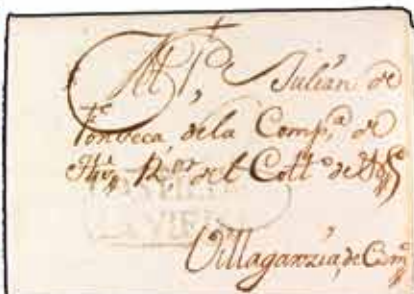 Al P.e Julian de
Fonseca, dela Comp.a de
Jhs, R.or del Coll.o de
Villagarzia, de Camp.s